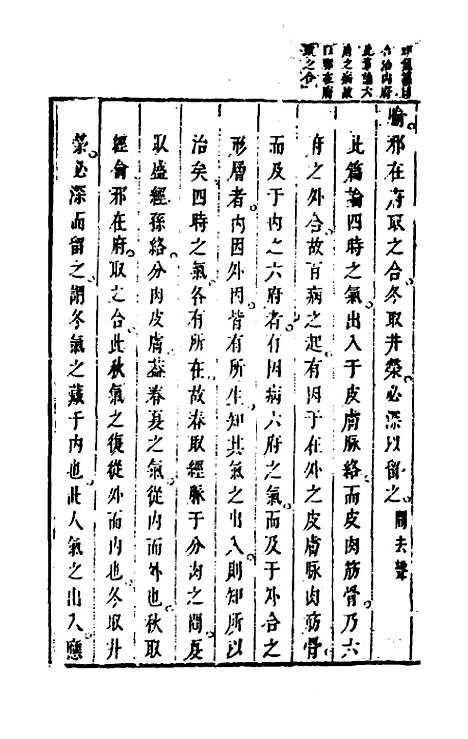 合治内府
此章論六
府之病故
曰邪在府
取之合
腧邪在府取之合冬取井滎必深以留之間去聲
此篇論四時之氣出入于皮膚脉絡而皮肉筋骨乃六
府之外合故百病之起有因于在外之皮膚脉肉筋骨
而及于内之六府者有因病六府之氣而及于外合之
形層者内因外因皆有所生知其氣之出入則知所以
治矣四時之氣各有所在故春取經脈于分肉之間夏
取盛經孫絡分肉皮膚葢春夏之氣從内而外也秋取
經俞邪在府取之合此秋氣之復從外而内也冬取井
滎必深而留之謂冬氣之藏于内也此人氣之出入應